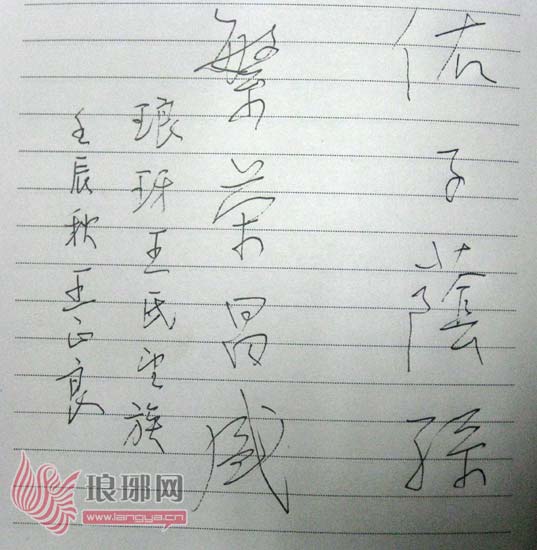 佑子蔭孫
繁荣昌盛
琅玡王氏望族
壬辰秋王正良
琅琊网
www.langya.cn